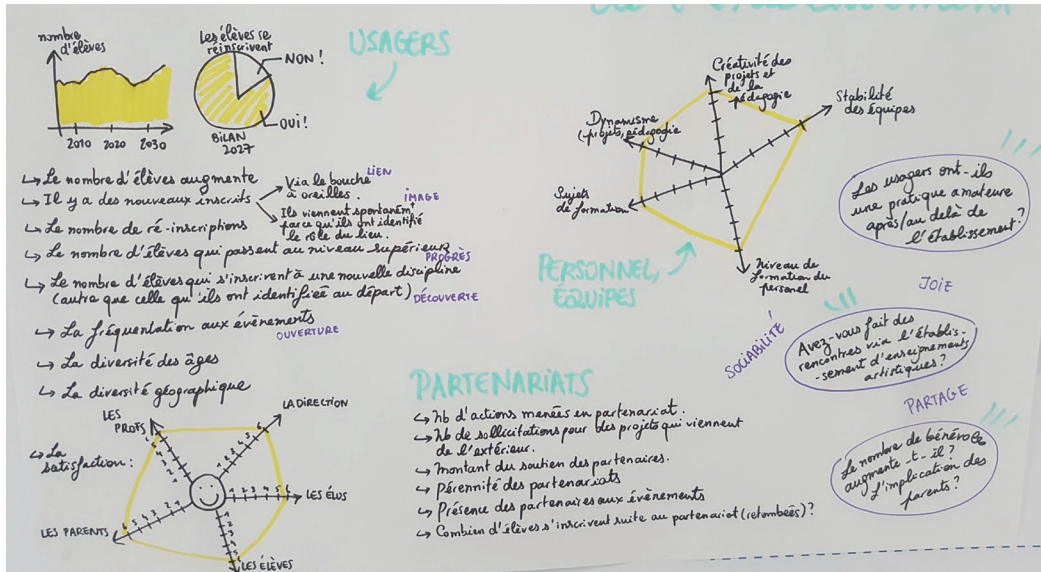 USAGERS
nombre
d'élèves
2010 2020 2030
Les élèves se
réinscrivent
NON !
OUI !
BILAN
2027
↳ Le nombre d'élèves augmente
↳ Il y a des nouveaux inscrits
Via le bouche
à oreilles.
LIEN
Ils viennent spontaném^t
parce qu'ils ont identifié
le rôle du lieu.
IMAGE
↳ Le nombre de ré-inscriptions
↳ Le nombre d'élèves qui passent au niveau supérieur
PROGRÈS
↳ Le nombre d'élèves qui s'inscrivent à une nouvelle discipline
(autre que celle qu'ils ont identifiée au départ)
DÉCOUVERTE
↳ La fréquentation aux évènements
OUVERTURE
↳ La diversité des âges
↳ La diversité géographique
↳ La
satisfaction :
LES
PROFS
LA DIRECTION
LES ÉLUS
LES ÉLÈVES
LES PARENTS
PERSONNEL,
ÉQUIPES
Créativité des
projets et
de la
pédagogie
Stabilité
des équipes
Dynamisme
(projets, pédagogie
Sujets
de formation
Niveau de
formation du
personnel
PARTENARIATS
↳ Nb d'actions menées en partenariat.
↳ Nb de sollicitations pour des projets qui viennent
de l'extérieur.
↳ Montant du soutien des partenaires.
↳ Pérennité des partenariats
↳ Présence des partenaires aux évènements
↳ Combien d'élèves s'inscrivent suite au partenariat (retombées) ?
Les usagers ont-ils
une pratique amateure
après/au delà de
l'établissement ?
JOIE
SOCIABILITÉ
Avez-vous fait des
rencontres via l'établis-
-sement d'enseignements
artistiques ?
PARTAGE
Le nombre de bénévoles
augmente-t-il ?
L'implication des
parents ?